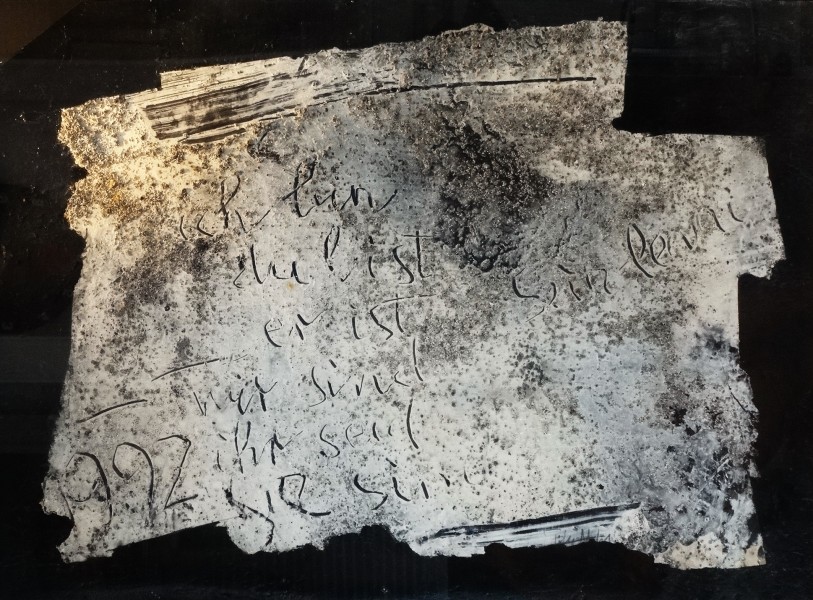 ich bin
du bist
sein
er ist
wir sind
ihr seid
1992
sie sin